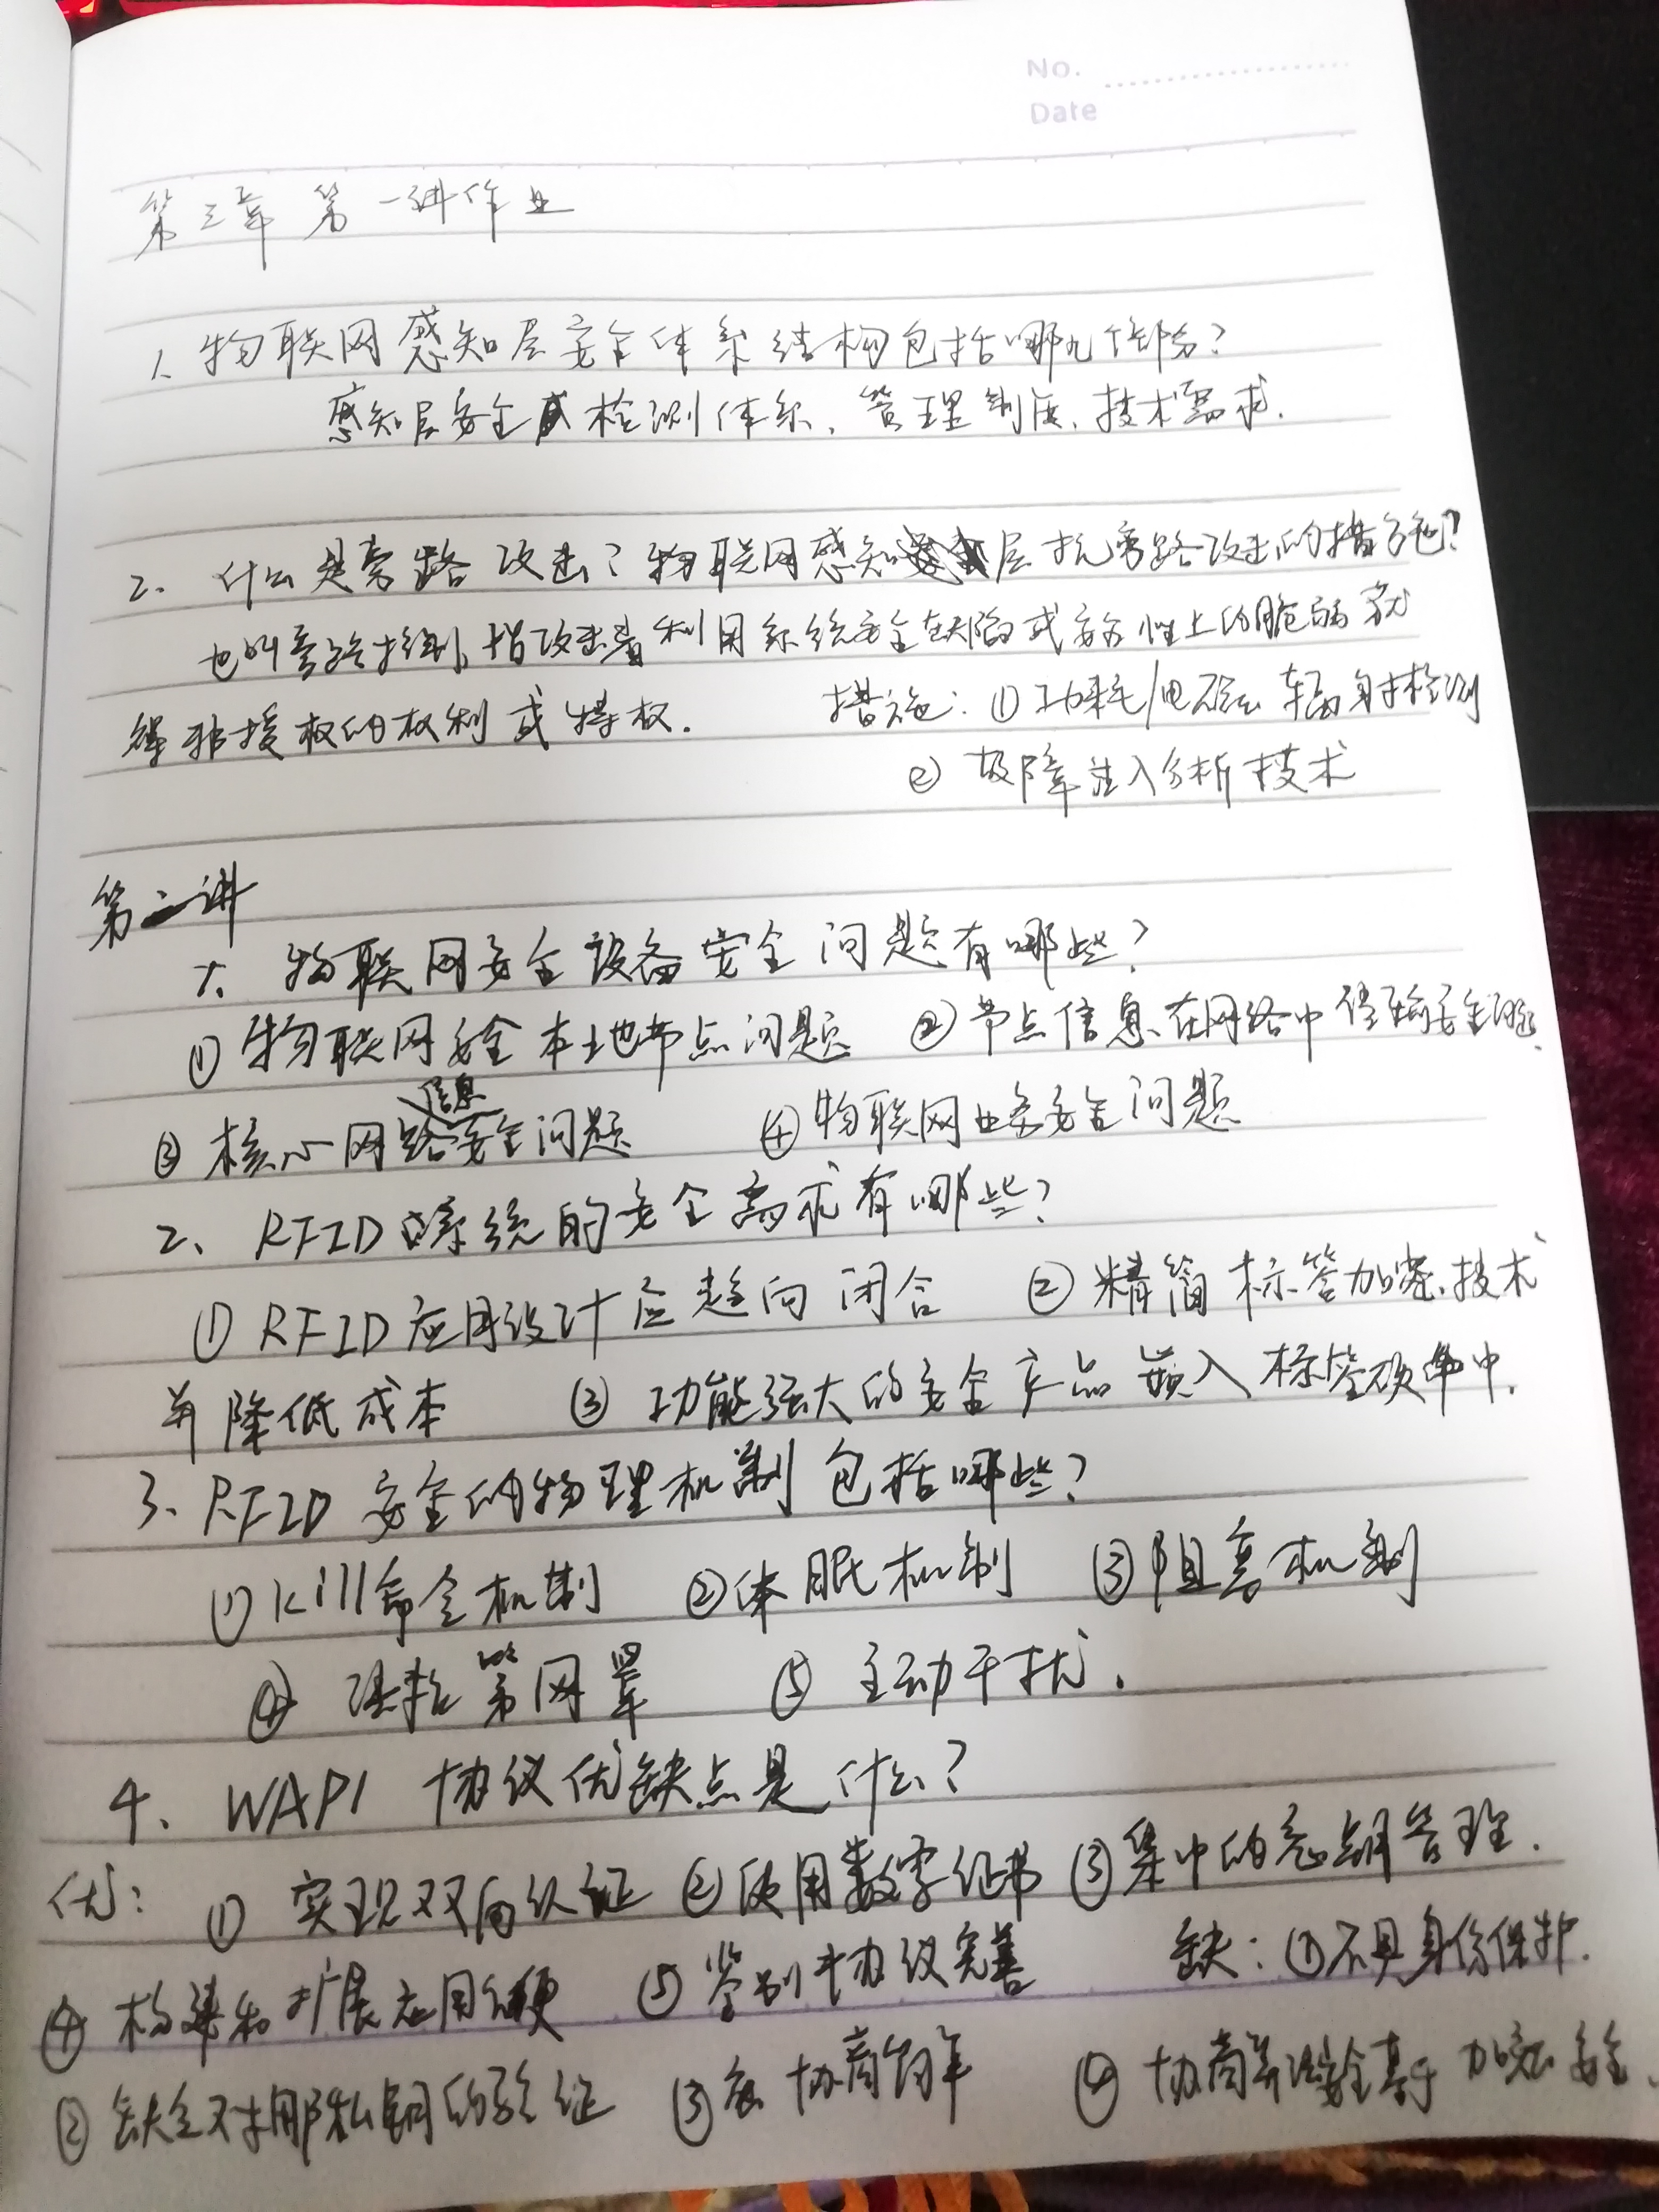 No.
Date
第三章 第一讲作业
1、物联网感知层安全体系结构包括哪几个部分?
感知层安全检测体系、管理制度、技术需求.
2、什么是旁路攻击?物联网感知层抗旁路攻击的措施?
也叫旁路控制,指攻击者利用系统安全缺陷或安全性上的脆弱获
得非授权的权利或特权. 措施:①功耗/电磁辐射检测
② 故障注入分析技术
第二讲
1. 物联网安全设备安全问题有哪些?
① 物联网安全本地节点问题 ② 节点信息在网络中传输安全问题.
③ 核心网络信息安全问题 ④ 物联网业务安全问题
2、RFID系统的安全需求有哪些?
① RFID应用设计应趋向闭合 ② 精简标签加密技术
并降低成本 ③ 功能强大的安全产品嵌入标签硬件中.
3、RFID 安全的物理机制包括哪些?
① kill命令机制 ②休眠机制 ③阻塞机制
④ 法拉第网罩 ⑤ 主动干扰.
4、WAPI 协议优缺点是什么?
优: ① 实现双向认证 ②使用数字证书 ③集中的密钥管理.
④ 构建和扩展应用便 ⑤ 鉴别协议完善 缺:①不具身份保护.
② 缺乏对私钥的验证 ③ 协商 ④ 协商算法安全基于加密安全.